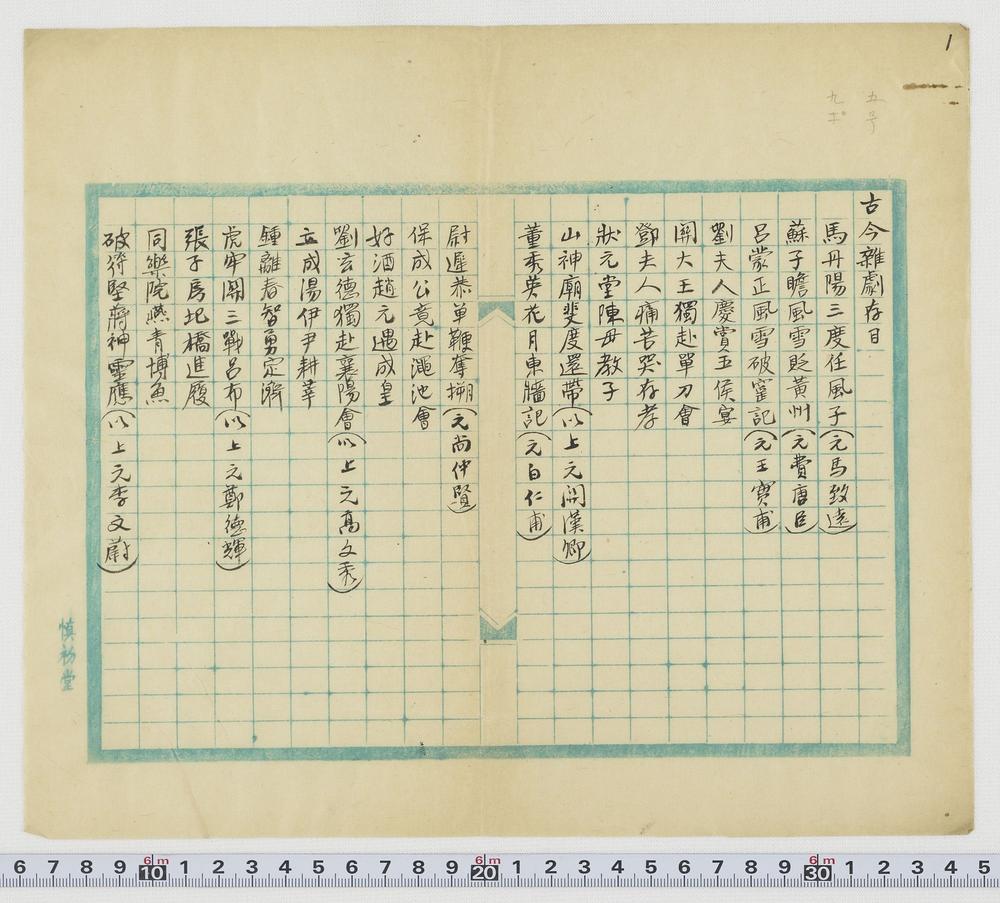 1
五号
九
古今雜劇存目
馬丹陽三度任風子(元馬致遠)
蘇子瞻風雪貶黃州(元費唐臣)
呂蒙正風雪破窰記(元王實甫)
劉夫人慶賞五侯宴
関大王獨赴單刀會
鄧夫人痛苦哭存孝
狀元堂陳母教子
山神廟斐度還帶(以上元関漢卿)
董秀英花月東牆記(元白仁甫)
尉遲恭單鞭奪槊(元尚仲賢)
保成公竟赴澠池會
好酒趙元遇成皇
劉玄德獨赴襄陽會(以上元高文秀)
立成湯伊尹耕莘
鍾離春智勇定齊
虎牢関三戰呂布(以上元鄭德輝)
張子房圯橋進履
同樂院燕青博魚
破苻堅蔣神靈應(以上元李文蔚)
慎初堂
6 7 8 9 10 1 2 3 4 5 6 7 8 9 20 1 2 3 4 5 6 7 8 9 30 1 2 3 4 5
6m 6m 6m